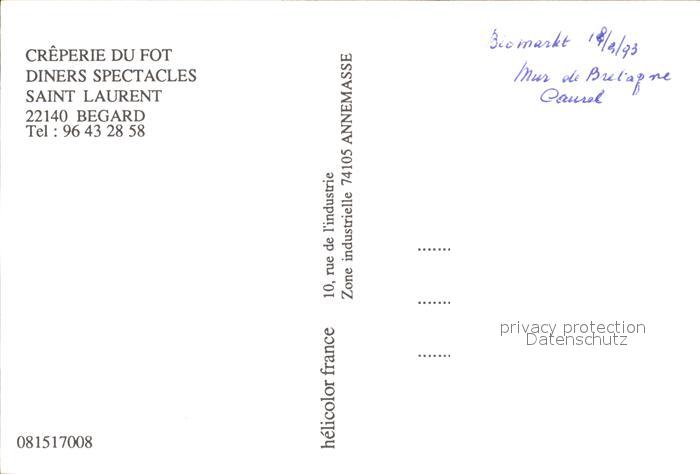 CRÊPERIE DU FOT
DINERS SPECTACLES
SAINT LAURENT
22140 BEGARD
Tel : 96 43 28 58
081517008
hélicolor france
10, rue de l'industrie
Zone industrielle 74105 ANNEMASSE
Biomarkt
Mur de Bretagne
Caurel
.......
.......
.......
privacy protection
Datenschutz